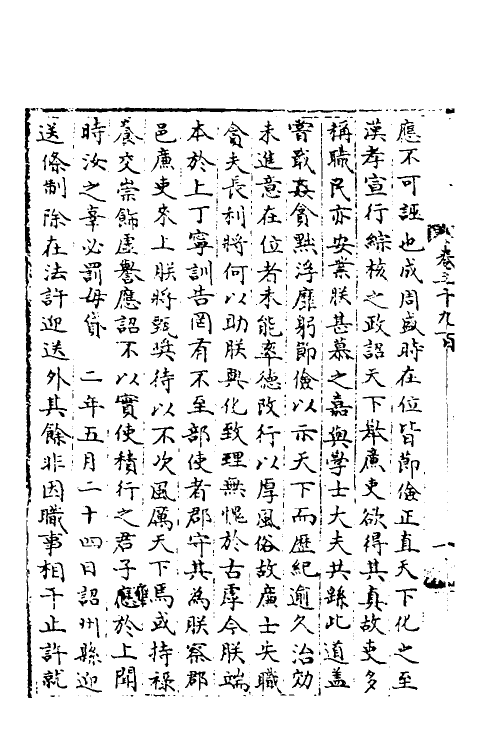 卷三十九百
一
應不可誣也成周盛時在位皆節儉正直天下化之至
漢孝宣行綜核之政詔天下舉廉吏欲得其真故吏多
稱職民亦安業朕甚慕之嘉與學士大夫共繇此道蓋
嘗戢姦貪黜浮靡躬節儉以示天下而歷紀逾久治効
未進意在位者未能率德改行以厚風俗故廉士失職
貪夫長利將何以助朕興化致理無愧於古虖今朕端
本於上丁寧訓告罔有不至部使者郡守其為朕察郡
邑廉吏來上朕將甄奬待以不次風厲天下焉或持祿
養交崇飾虛譽應詔不以實使積行之君子壅於上聞
時汝之辜必罰毋貸 二年五月二十四日詔州縣迎
送條制除在法許迎送外其餘非因職事相干止許就